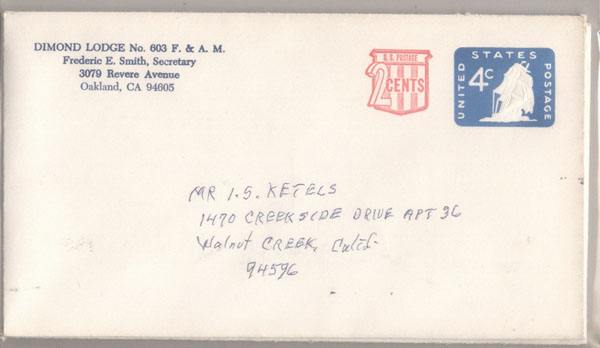 DIMOND LODGE No. 603 F. & A. M.
Frederic E. Smith, Secretary
3079 Revere Avenue
Oakland, CA 94605
U.S. POSTAGE
2 CENTS
UNITED STATES POSTAGE
4c
MR I.S. KETELS
1470 CREEKSIDE DRIVE APT 36
Walnut CREEK, Calif.
94596